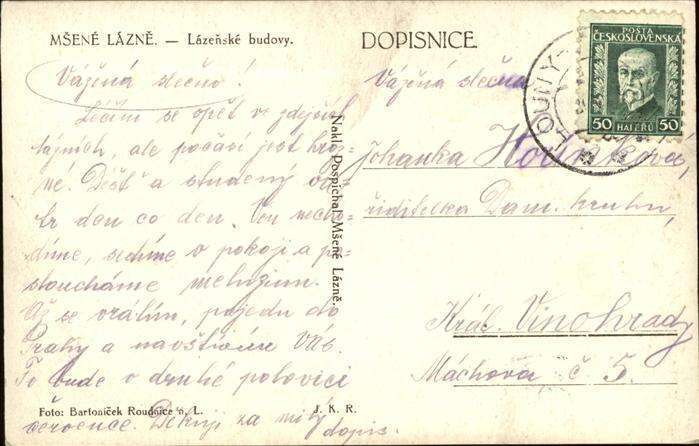 MŠENÉ LÁZNĚ. — Lázeňské budovy.
DOPISNICE
POSTA
ČESKOSLOVENSKÁ
50 HALÉŘŮ 50
LOUNY
Vážená slečno!
Léčím se opět v zdejších
lázních, ale počasí jest hro-
zné. Déšť a studený ví-
tr den co den. Ven necho-
díme, sedíme v pokoji a po-
sloucháme
Až se vrátím, pojedu do
Prahy a navštívím Vás.
To bude v druhé polovici
července. Děkuji za milý
dopis.
Nakl. Dospíchal, Mšené Lázně.
Vážená slečna
Johanka
ředitelka Dam. kruhu,
Král. Vinohrady
Máchova č 5.
Foto: Bartoníček Roudnice n. L.
J. K. R.